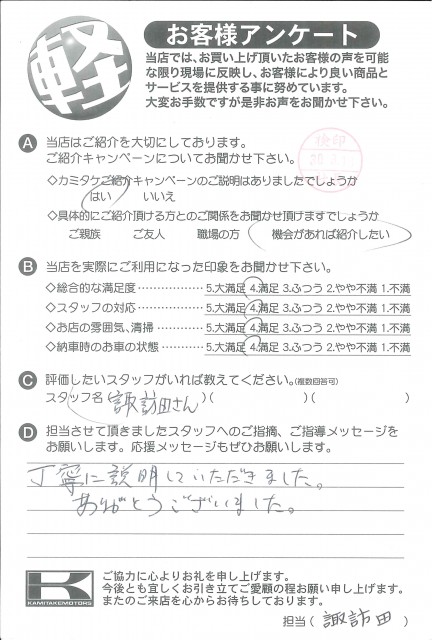 軽
お客様アンケート
当店では、お買い上げ頂いたお客様の声を可能
な限り現場に反映し、お客様により良い商品と
サービスを提供する事に努めています。
大変お手数ですが是非お声をお聞かせ下さい。
検印
A 当店はご紹介を大切にしております。
ご紹介キャンペーンについてお聞かせ下さい。
◇カミタケご紹介キャンペーンのご説明はありましたでしょうか
はい いいえ
◇具体的にご紹介頂ける方とのご関係をお聞かせ頂けますでしょうか
ご親族 ご友人 職場の方 機会があれば紹介したい
B 当店を実際にご利用になった印象をお聞かせ下さい。
◇総合的な満足度……………… 5.大満足 4.満足 3.ふつう 2.やや不満 1.不満
◇スタッフの対応……………… 5.大満足 4.満足 3.ふつう 2.やや不満 1.不満
◇お店の雰囲気、清掃………… 5.大満足 4.満足 3.ふつう 2.やや不満 1.不満
◇納車時のお車の状態………… 5.大満足 4.満足 3.ふつう 2.やや不満 1.不満
C 評価したいスタッフがいれば教えてください。(複数回答可)
スタッフ名(諏訪田さん)( )( )
D 担当させて頂きましたスタッフへのご指摘、ご指導メッセージを
お願いします。応援メッセージもぜひお願いします。
丁寧に説明していただきました。
ありがとうございました。
K
KAMITAKEMOTORS
ご協力に心よりお礼を申し上げます。
今後とも宜しくお引き立てご愛顧の程お願い申し上げます。
またのご来店を心からお待ちしております。
担当(諏訪田)